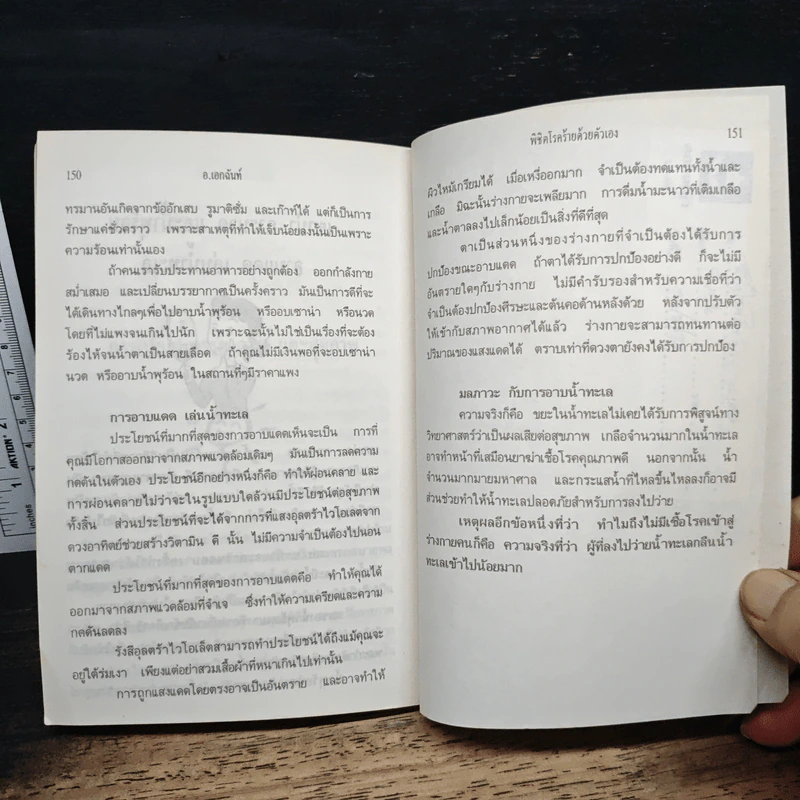 150
อ.เอกฉันท์
ทรมานอันเกิดจากข้ออักเสบ รูมาติซั่ม และเก๊าท์ได้ แต่ก็เป็นการ
รักษาแค่ชั่วคราว เพราะสาเหตุที่ทำให้เจ็บน้อยลงนั้นเป็นเพราะ
ความร้อนเท่านั้นเอง
ถ้าคนเรารับประทานอาหารอย่างถูกต้อง ออกกำลังกาย
สม่ำเสมอ และเปลี่ยนบรรยากาศเป็นครั้งคราว มันเป็นการดีที่จะ
ได้เดินทางไกลๆเพื่อไปอาบน้ำพุร้อน หรืออบเซาน่า หรือนวด
โดยที่ไม่แพงจนเกินไปนัก เพราะฉะนั้นไม่ใช่เป็นเรื่องที่จะต้อง
ร้องไห้จนน้ำตาเป็นสายเลือด ถ้าคุณไม่มีเงินพอที่จะอบเซาน่า
นวด หรืออาบน้ำพุร้อน ในสถานที่ๆมีราคาแพง
การอาบแดด เล่นน้ำทะเล
ประโยชน์ที่มากที่สุดของการอาบแดดเห็นจะเป็น การที่
คุณมีโอกาสออกมาจากสภาพแวดล้อมเดิมๆ มันเป็นการลดความ
กดดันในตัวเอง ประโยชน์อีกอย่างหนึ่งก็คือ ทำให้ผ่อนคลาย และ
การผ่อนคลายไม่ว่าจะในรูปแบบใดล้วนมีประโยชน์ต่อสุขภาพ
ทั้งสิ้น ส่วนประโยชน์ที่จะได้จากการที่แสงอุลตร้าไวโอเลตจาก
ดวงอาทิตย์ช่วยสร้างวิตามิน ดี นั้น ไม่มีความจำเป็นต้องไปนอน
ตากแดด
ประโยชน์ที่มากที่สุดของการอาบแดดคือ ทำให้คุณได้
ออกมาจากสภาพแวดล้อมที่จำเจ ซึ่งทำให้ความเครียดและความ
กดดันลดลง
รังสีอุลตร้าไวโอเล็ตสามารถทำประโยชน์ได้ถึงแม้คุณจะ
อยู่ใต้ร่มเงา เพียงแต่อย่าสวมเสื้อผ้าที่หนาเกินไปเท่านั้น
การถูกแสงแดดโดยตรงอาจเป็นอันตราย และอาจทำให้
พิชิตโรคร้ายด้วยตัวเอง
151
ผิวไหม้เกรียมได้ เมื่อเหงื่อออกมาก จำเป็นต้องทดแทนทั้งน้ำและ
เกลือ มิฉะนั้นร่างกายจะเพลียมาก การดื่มน้ำมะนาวที่เติมเกลือ
และน้ำตาลลงไปเล็กน้อยเป็นสิ่งที่ดีที่สุด
ตาเป็นส่วนหนึ่งของร่างกายที่จำเป็นต้องได้รับการ
ปกป้องขณะอาบแดด ถ้าตาได้รับการปกป้องอย่างดี ก็จะไม่มี
อันตรายใดๆกับร่างกาย ไม่มีคำรับรองสำหรับความเชื่อที่ว่า
จำเป็นต้องปกป้องศีรษะและต้นคอด้านหลังด้วย หลังจากปรับตัว
ให้เข้ากับสภาพอากาศได้แล้ว ร่างกายจะสามารถทนทานต่อ
ปริมาณของแสงแดดได้ ตราบเท่าที่ดวงตายังคงได้รับการปกป้อง
มลภาวะ กับการอาบน้ำทะเล
ความจริงก็คือ ขยะในน้ำทะเลไม่เคยได้รับการพิสูจน์ทาง
วิทยาศาสตร์ว่าเป็นผลเสียต่อสุขภาพ เกลือจำนวนมากในน้ำทะเล
อาจทำหน้าที่เสมือนยาฆ่าเชื้อโรคคุณภาพดี นอกจากนั้น น้ำ
จำนวนมากมายมหาศาล และกระแสน้ำที่ไหลขึ้นไหลลงก็อาจมี
ส่วนช่วยทำให้น้ำทะเลปลอดภัยสำหรับการลงไปว่าย
เหตุผลอีกข้อหนึ่งที่ว่า ทำไมถึงไม่มีเชื้อโรคเข้าสู่
ร่างกายคนก็คือ ความจริงที่ว่า ผู้ที่ลงไปว่ายน้ำทะเลกลืนน้ำ
ทะเลเข้าไปน้อยมาก
inches
1
2
3
ACTION